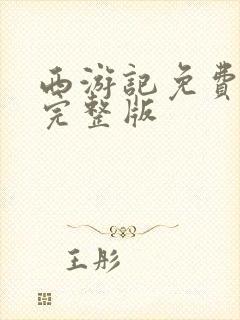 西游記免費
完整版
王彤